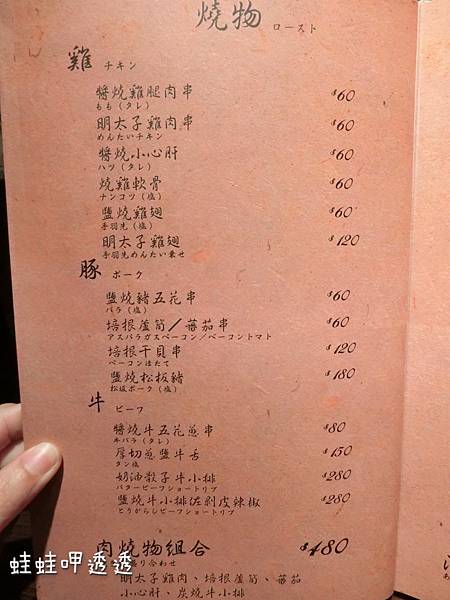 燒物
ロースト
雞 チキン
醬燒雞腿肉串 $60
もも（タレ）
明太子雞肉串 $60
めんたいチキン
醬燒小心肝 $60
ハツ（タレ）
燒雞軟骨 $60
ナンコツ（塩）
鹽燒雞翅 $60
手羽先（塩）
明太子雞翅 $120
手羽先めんたい乗せ
豚 ポーク
鹽燒豬五花串 $60
バラ（塩）
培根蘆筍／蕃茄串 $60
アスパラガスベーコン／ベーコントマト
培根干貝串 $120
ベーコンほたて
鹽燒松板豬 $180
松坂ポーク（塩）
牛 ビーフ
醬燒牛五花蔥串 $80
牛バラ（タレ）
厚切蔥鹽牛舌 $150
タン塩
奶油骰子牛小排 $280
バタービーフショートリブ
鹽燒牛小排佐剝皮辣椒 $280
とうがらしビーフショートリブ
肉燒物組合 $480
り合わせ
明太子雞肉、培根蘆筍、蕃茄
小心肝、炭燒牛小排
蛙蛙呷透透